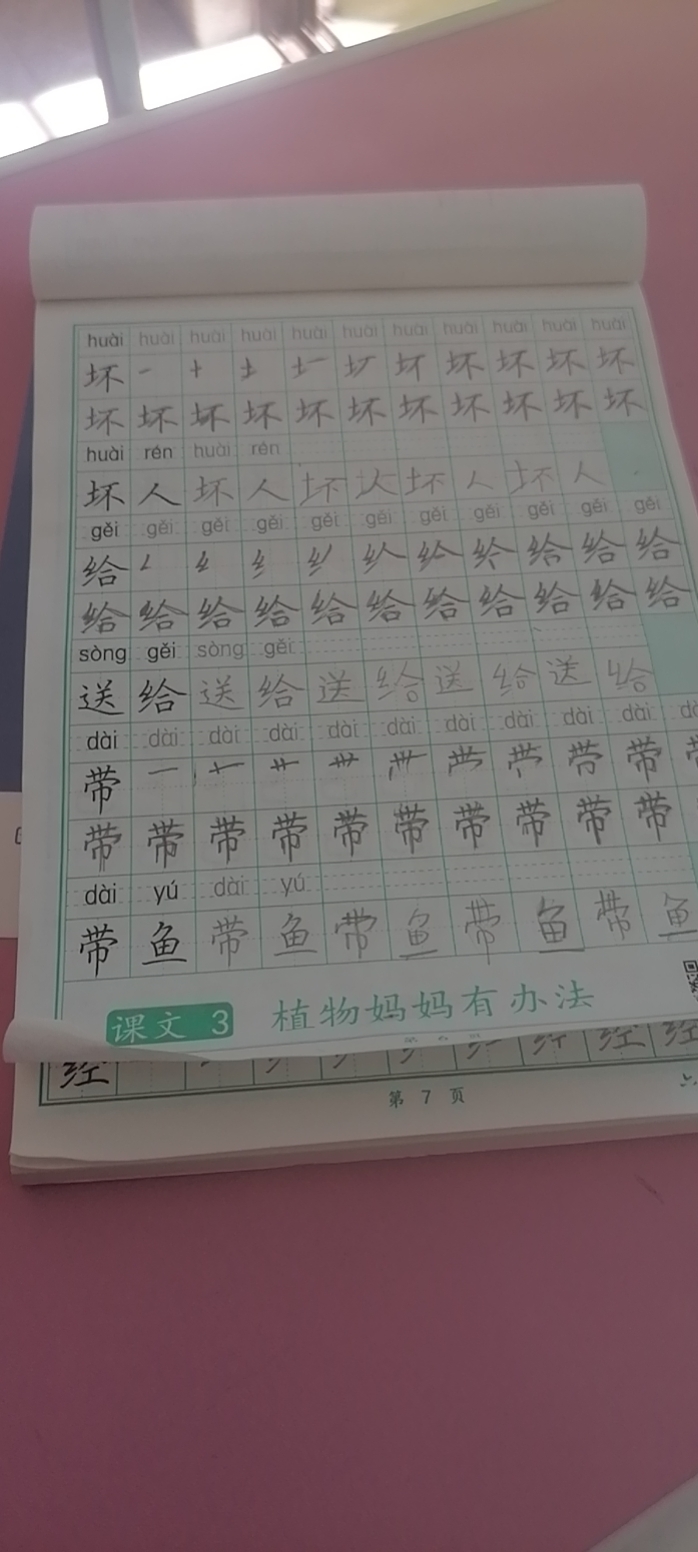 huài huài huài huài huài huài huài huài huài huài huài
坏 坏 坏 坏 坏 坏
坏 坏 坏 坏 坏 坏 坏 坏 坏 坏 坏
huài rén huài rén
坏 人 坏 人 坏 坏 人 坏 人
gěi gěi gěi gěi gěi gěi gěi gěi gěi gěi gěi
给 给 给 给
给 给 给 给 给 给 给 给 给 给 给
sòng gěi sòng gěi
送 给 送 给 送 给 送 给 送 给
dài dài dài dài dài dài dài dài dài dài
带 带
带 带 带 带 带 带 带 带 带 带
dài yú dài yú
带 鱼 带 鱼 带 鱼 带 鱼 带 鱼
课文 3 植物妈妈有办法
经 经 经
第 7 页